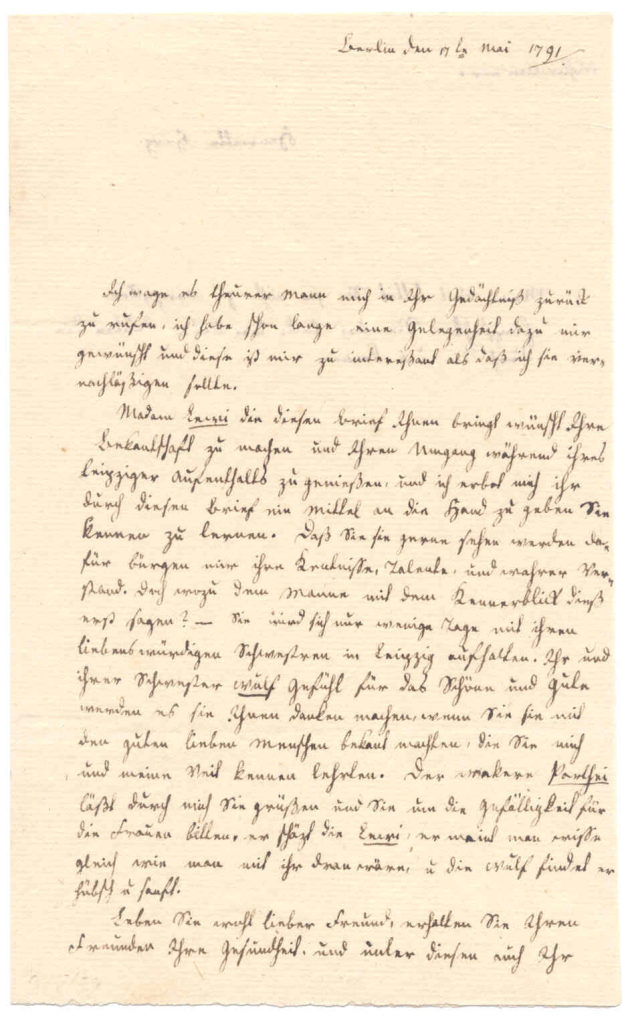 Berlin den 17 t Mai 1791
Ich wage es theurer Mann mich in Ihr Gedächtniß zurück
zu rufen, ich habe schon lange eine Gelegenheit dazu mir
gewünscht und diese ist mir zu interessant als daß ich sie ver-
nachläßigen sollte.
Madam Lewi die diesen Brief Ihnen bringt wünscht Ihre
Bekantschaft zu machen und Ihren Umgang während ihres
Leipziger Aufenthalts zu genießen, und ich erbot mich ihr
durch diesen Brief ein Mittel an die Hand zu geben Sie
kennen zu lernen. Daß Sie sie gerne sehen werden da-
für bürgen mir ihre Kentnisse, Talente, und wahrer Ver-
stand. Doch wozu dem Manne mit dem Kennerblick dieß
erst sagen? — Sie wird sich nur wenige Tage mit ihren
liebenswürdigen Schwestren in Leipzig aufhalten. Ihr und
ihrer Schwester Wulf Gefühl für das Schöne und Gute
werden es sie Ihnen danken machen, wenn Sie sie mit
den guten lieben Menschen bekant machten, die Sie mich
und meine Veit kennen lehrten. Der wakere Parthei
läßt durch mich Sie grüßen und Sie um die Gefälligkeit für
die Frauen bitten, er schäzt die Lewi, er meint man wisse
gleich wie man mit ihr dran wäre, u die Wulf findet er
hübsch u sanft.
Leben Sie wohl lieber Freund, erhalten Sie Ihren
Freunden Ihre Gesundheit, und unter diesen auch Ihr